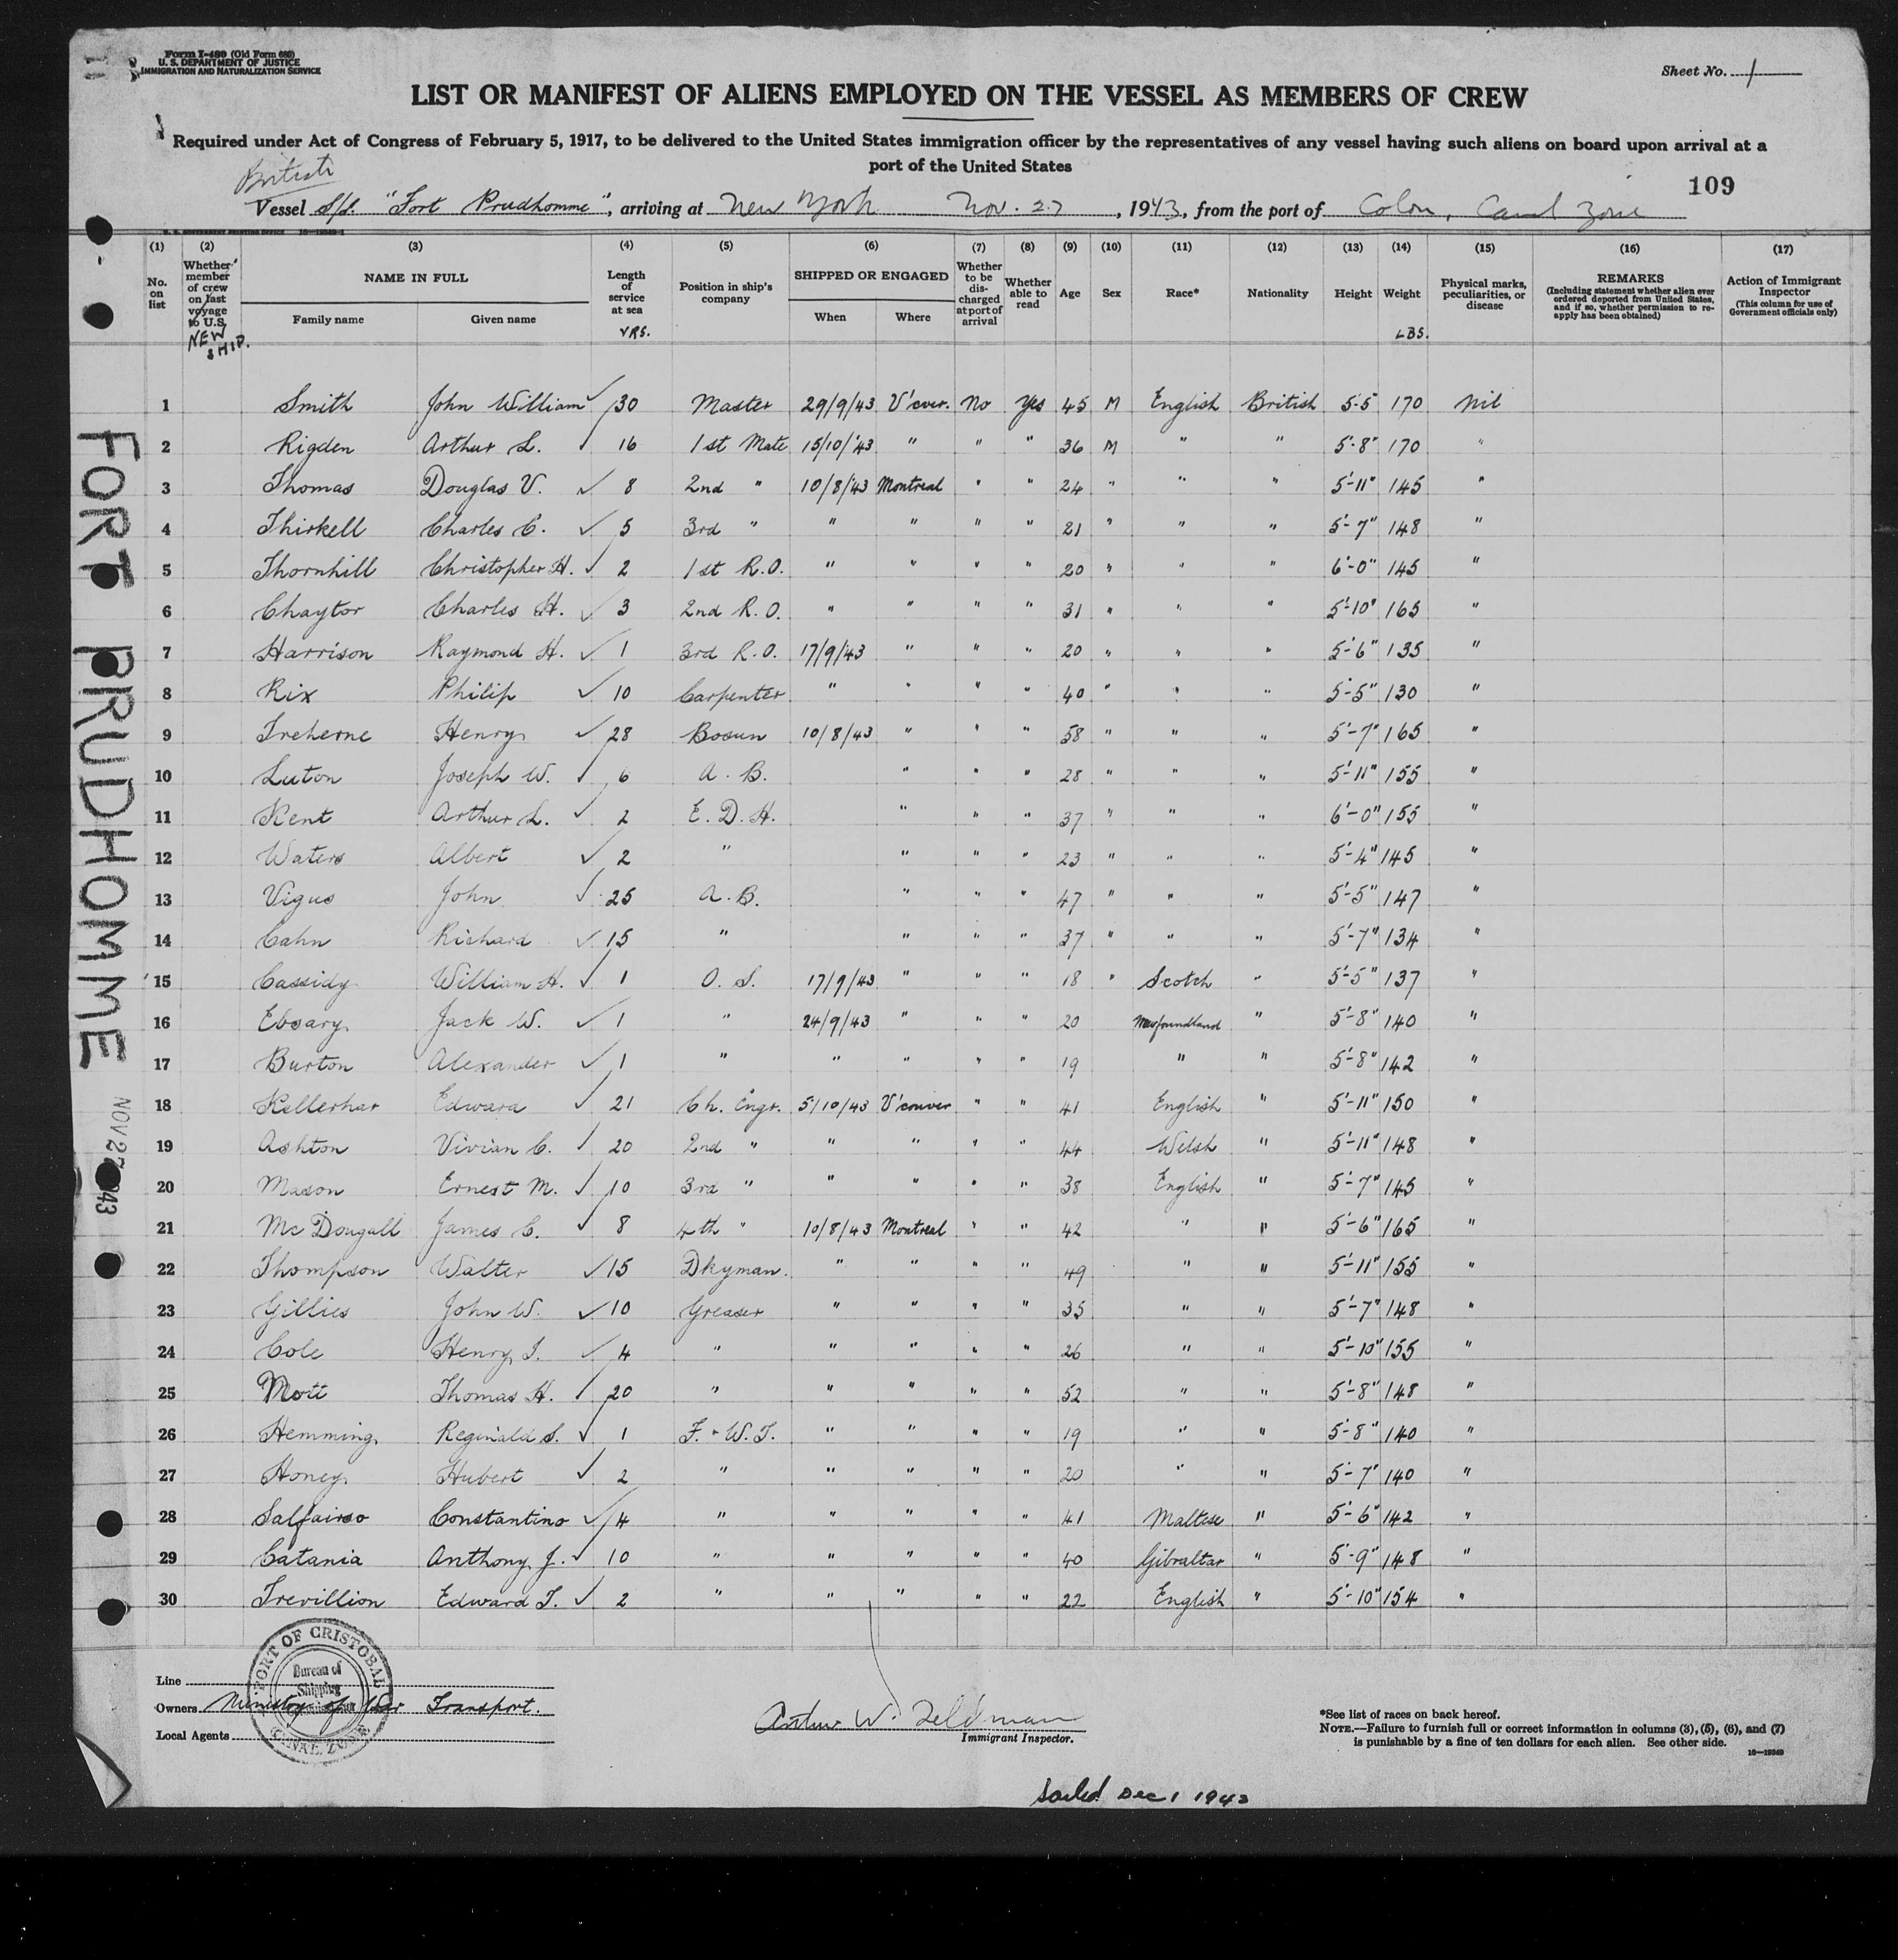 Form I-480 (Old Form 680)
U. S. DEPARTMENT OF JUSTICE
IMMIGRATION AND NATURALIZATION SERVICE
Sheet No. 1
LIST OR MANIFEST OF ALIENS EMPLOYED ON THE VESSEL AS MEMBERS OF CREW
Required under Act of Congress of February 5, 1917, to be delivered to the United States immigration officer by the representatives of any vessel having such aliens on board upon arrival at a
port of the United States
British
109
Vessel S/S. "Fort Prudhomme", arriving at New York Nov. 27, 1943, from the port of Colon, Canal Zone
(1) (2) (3) (4) (5) (6) (7) (8) (9) (10) (11) (12) (13) (14) (15) (16) (17)
No. on list
Whether member of crew on last voyage to U.S.
NEW SHIP.
NAME IN FULL
Family name Given name
Length of service at sea
YRS.
Position in ship's company
SHIPPED OR ENGAGED
When Where
Whether to be discharged at port of arrival
Whether able to read
Age
Sex
Race*
Nationality
Height
Weight
LBS.
Physical marks, peculiarities, or disease
REMARKS
(Including statement whether alien ever ordered deported from United States, and if so, whether permission to re-apply has been obtained)
Action of Immigrant Inspector
(This column for use of Government officials only)
1 Smith John William ✓ 30 Master 29/9/43 V'cver. No Yes 45 M English British 5-5 170 Nil
2 Rigden Arthur L. ✓ 16 1st Mate 15/10/'43 " " " 36 M " " 5'-8" 170 "
3 Thomas Douglas V. ✓ 8 2nd " 10/8/43 Montreal " " 24 " " " 5'-11" 145 "
4 Thirkell Charles C. ✓ 5 3rd " " " " " 21 " " " 5'-7" 148 "
5 Thornhill Christopher H. ✓ 2 1st R.O. " " " " 20 " " " 6'-0" 145 "
6 Chaytor Charles H. ✓ 3 2nd R.O. " " " " 31 " " " 5'-10" 165 "
7 Harrison Raymond H. ✓ 1 3rd R.O. 17/9/43 " " " 20 " " " 5'-6" 135 "
8 Rix Philip ✓ 10 Carpenter " " " " 40 " " " 5'-5" 130 "
9 Treherne Henry ✓ 28 Bosun 10/8/43 " " " 58 " " " 5'-7" 165 "
10 Luton Joseph W. ✓ 6 A. B. " " " 28 " " " 5'-11" 155 "
11 Kent Arthur L. ✓ 2 E. D. H. " " " 37 " " " 6'-0" 155 "
12 Waters Albert ✓ 2 " " " " 23 " " " 5'-4" 145 "
13 Vigus John ✓ 25 A. B. " " " 47 " " " 5'-5" 147 "
14 Cahn Richard ✓ 15 " " " " 37 " " " 5'-7" 134 "
15 Cassidy William H. ✓ 1 O. S. 17/9/43 " " " 18 " Scotch " 5'-5" 137 "
16 Ebsary Jack W. ✓ 1 " 24/9/43 " " " 20 Newfoundland " 5'-8" 140 "
17 Burton Alexander ✓ 1 " " " " " 19 " " 5'-8" 142 "
18 Kellerhar Edward ✓ 21 Ch. Engr. 5/10/43 V'couver " " 41 English " 5'-11" 150 "
19 Ashton Vivian C. ✓ 20 2nd " " " " " 44 Welsh " 5'-11" 148 "
20 Mason Ernest M. ✓ 10 3rd " " " " " 38 English " 5'-7" 145 "
21 Mc Dougall James C. ✓ 8 4th " 10/8/43 Montreal " " 42 " " 5'-6" 165 "
22 Thompson Walter ✓ 15 Dkyman. " " " " 49 " " 5'-11" 155 "
23 Gillies John W. ✓ 10 Greaser " " " " 35 " " 5'-7" 148 "
24 Cole Henry J. ✓ 4 " " " " " 26 " " 5'-10" 155 "
25 Mott Thomas H. ✓ 20 " " " " " 52 " " 5'-8" 148 "
26 Hemming Reginald S. ✓ 1 F. & W. T. " " " " 19 " " 5'-8" 140 "
27 Honey Hubert ✓ 2 " " " " " 20 " " 5'-7" 140 "
28 Constantino ✓ 4 " " " " " 41 Maltese " 5'-6" 142 "
29 Catania Anthony J. ✓ 10 " " " " " 40 Gibraltar " 5'-9" 148 "
30 Trevillion Edward T. ✓ 2 " " " " " 22 English " 5'-10" 154 "
FORT PRUDHOMME
NOV 27 43
PORT OF CRISTOBAL
Bureau of
Shipping
CANAL ZONE
Line
Owners Ministry of War Transport.
Local Agents
Arthur W. Feldman
Immigrant Inspector.
*See list of races on back hereof.
NOTE.—Failure to furnish full or correct information in columns (3), (5), (6), and (7)
is punishable by a fine of ten dollars for each alien. See other side.
Sailed Dec 1 1943